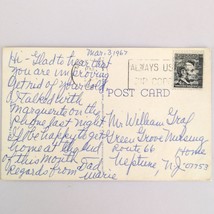 Mar. 3, 1967
Hi - Glad to hear that
you are improving
Get rid of your cold
I talked with
Marguerite on the
phone last night
I'll be happy to get
home at the end
of this month
Regards from Dad
Marie
POST CARD
ALWAYS US
ZIP CODE
Mr William Graf
Green Grove Nursing
Home
Route 66
Neptune, N.J. 07753